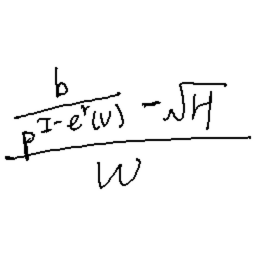 \frac{\frac{b}{p^{I-e^{r}(v)}}-\sqrt{H}}{W}